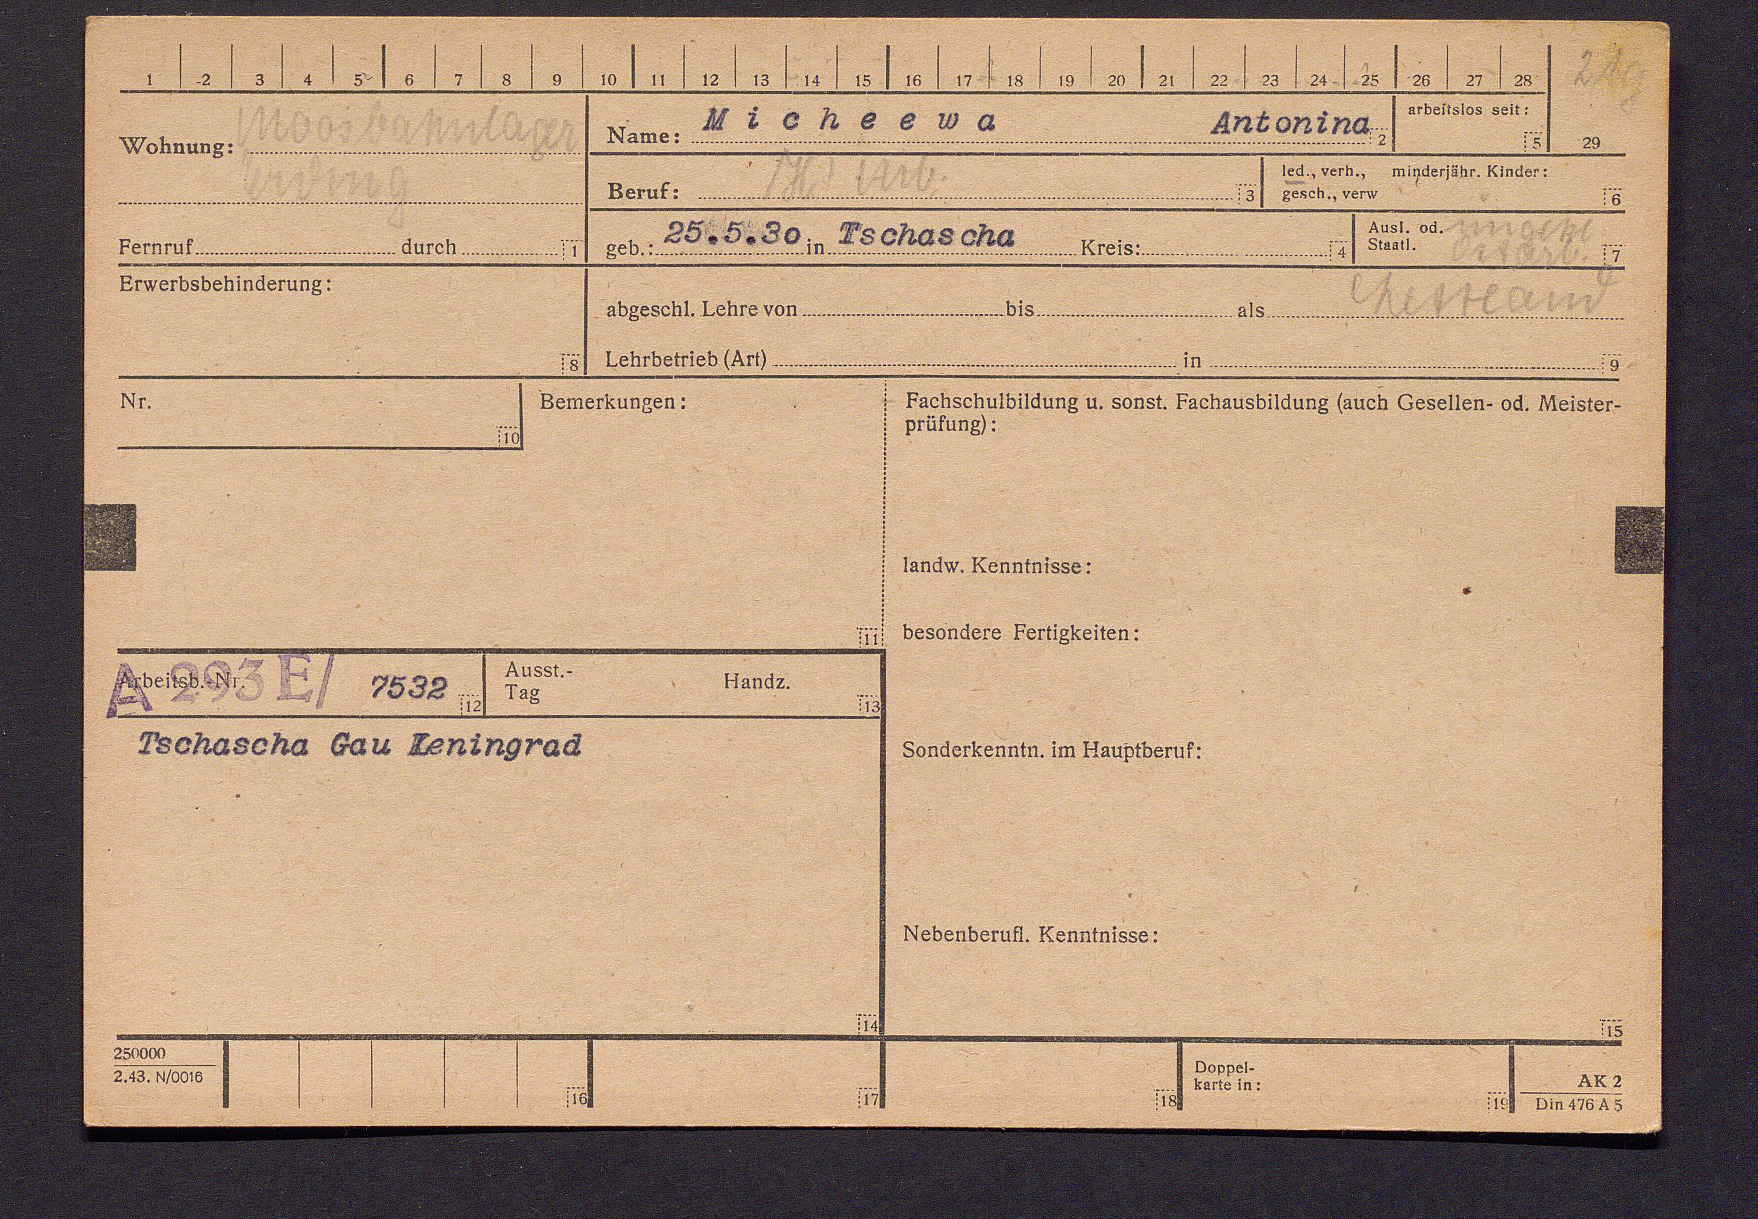 1 2 3 4 5 6 7 8 9 10 11 12 13 14 15 16 17 18 19 20 21 22 23 24 25 26 27 28
29
Wohnung: Moosbahnlager
Erding
Fernruf durch 1
Name: Micheewa Antonina 2
arbeitslos seit: 5
Beruf: Arb. 3
led., verh., minderjähr. Kinder:
gesch., verw 6
geb.: 25.5.30 in Tschascha Kreis: 4
Ausl. od.
Staatl. Ostarb. 7
Erwerbsbehinderung:
8
abgeschl. Lehre von bis als
Lehrbetrieb (Art) in 9
Nr.
10
Bemerkungen:
11
Fachschulbildung u. sonst. Fachausbildung (auch Gesellen- od. Meister-
prüfung):
landw. Kenntnisse:
besondere Fertigkeiten:
Arbeitsb.-Nr. A 293 E/ 7532 12
Ausst.-
Tag Handz. 13
Tschascha Gau Leningrad
14
Sonderkenntn. im Hauptberuf:
Nebenberufl. Kenntnisse:
15
250000
2.43. N/0016
16
17
18
Doppel-
karte in: 19
AK 2
Din 476 A 5